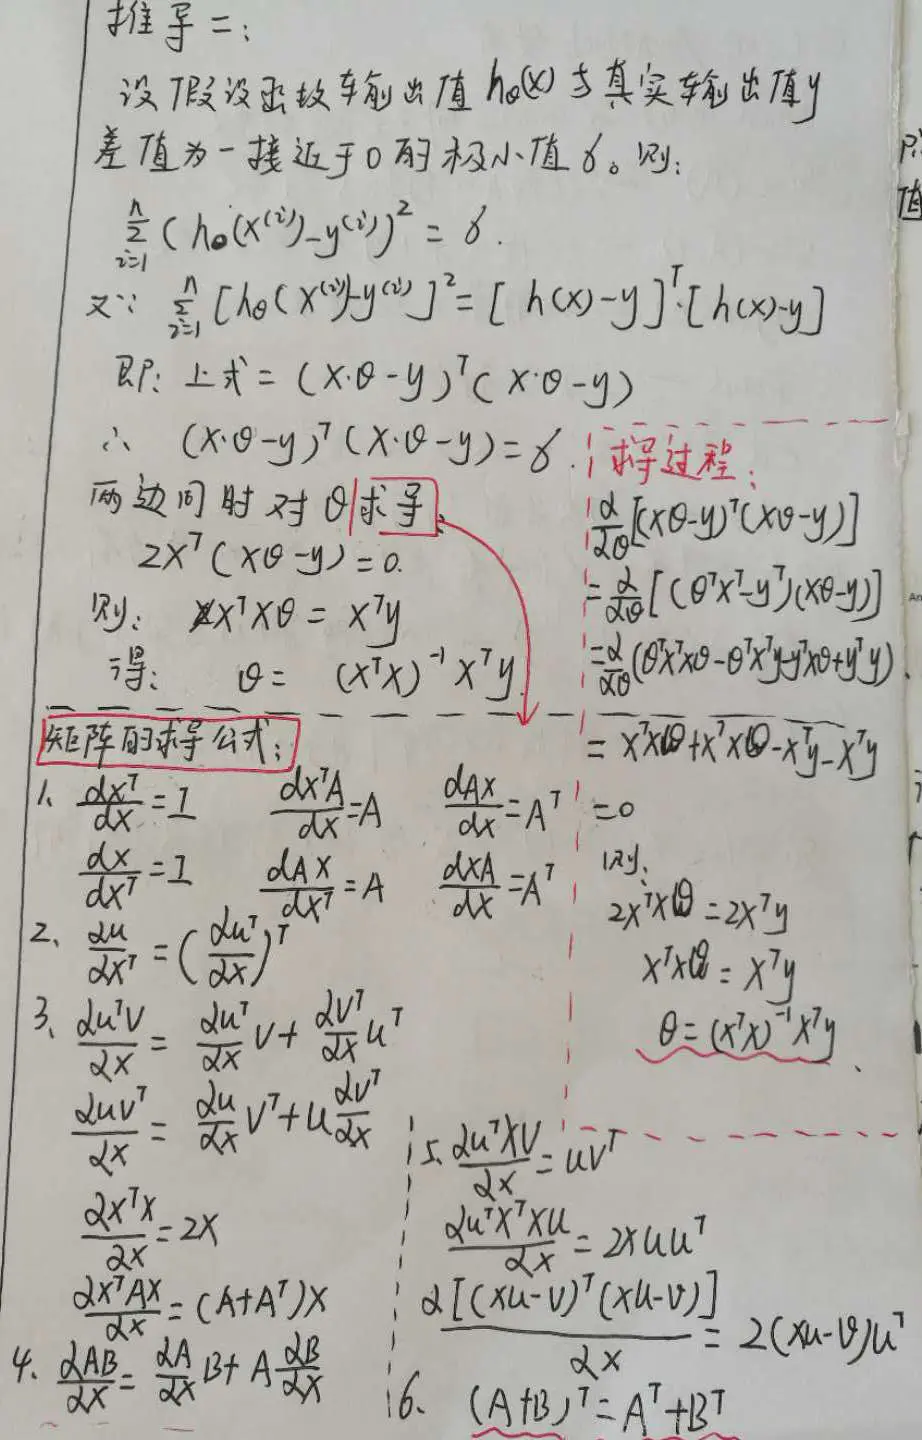 推导二:
设假设函数输出值 hθ(x) 与真实输出值 y
差值为一接近于0的极小值 δ。则:
∑ⁿᵢ₌₁ (hθ(x⁽ⁱ⁾)-y⁽ⁱ⁾)² = δ.
又∵ ∑ⁿᵢ₌₁ [hθ(x⁽ⁱ⁾)-y⁽ⁱ⁾]² = [h(x)-y]ᵀ·[h(x)-y]
即: 上式 = (X·θ-y)ᵀ(X·θ-y)
∴ (X·θ-y)ᵀ(X·θ-y) = δ.
两边同时对θ求导.
2Xᵀ(Xθ-y) = 0.
则: XᵀXθ = Xᵀy
得: θ = (XᵀX)⁻¹Xᵀy.
求导过程:
∂/∂θ[(Xθ-y)ᵀ(Xθ-y)]
= ∂/∂θ[(θᵀXᵀ-yᵀ)(Xθ-y)]
= ∂/∂θ(θᵀXᵀXθ-θᵀXᵀy-yᵀXθ+yᵀy)
= XᵀXθ+XᵀXθ-Xᵀy-Xᵀy
= 0
则:
2XᵀXθ = 2Xᵀy
XᵀXθ = Xᵀy
θ = (XᵀX)⁻¹Xᵀy
矩阵的求导公式:
1、 dxᵀ/dx = I dxᵀA/dx = A dAx/dx = Aᵀ
dx/dxᵀ = I dAx/dxᵀ = A dxA/dx = Aᵀ
2、 ∂u/∂xᵀ = (∂uᵀ/∂x)ᵀ
3、 ∂uᵀv/∂x = ∂uᵀ/∂x v + ∂vᵀ/∂x uᵀ
∂uvᵀ/∂x = ∂u/∂x vᵀ + u ∂vᵀ/∂x
∂xᵀx/∂x = 2x
∂xᵀAx/∂x = (A+Aᵀ)x
4、 ∂AB/∂x = ∂A/∂x B + A ∂B/∂x
5、 ∂uᵀXv/∂x = uvᵀ
∂uᵀXᵀXu/∂x = 2Xuuᵀ
∂[(Xu-v)ᵀ(Xu-v)]/∂x = 2(Xu-v)uᵀ
6、 (A+B)ᵀ = Aᵀ+Bᵀ